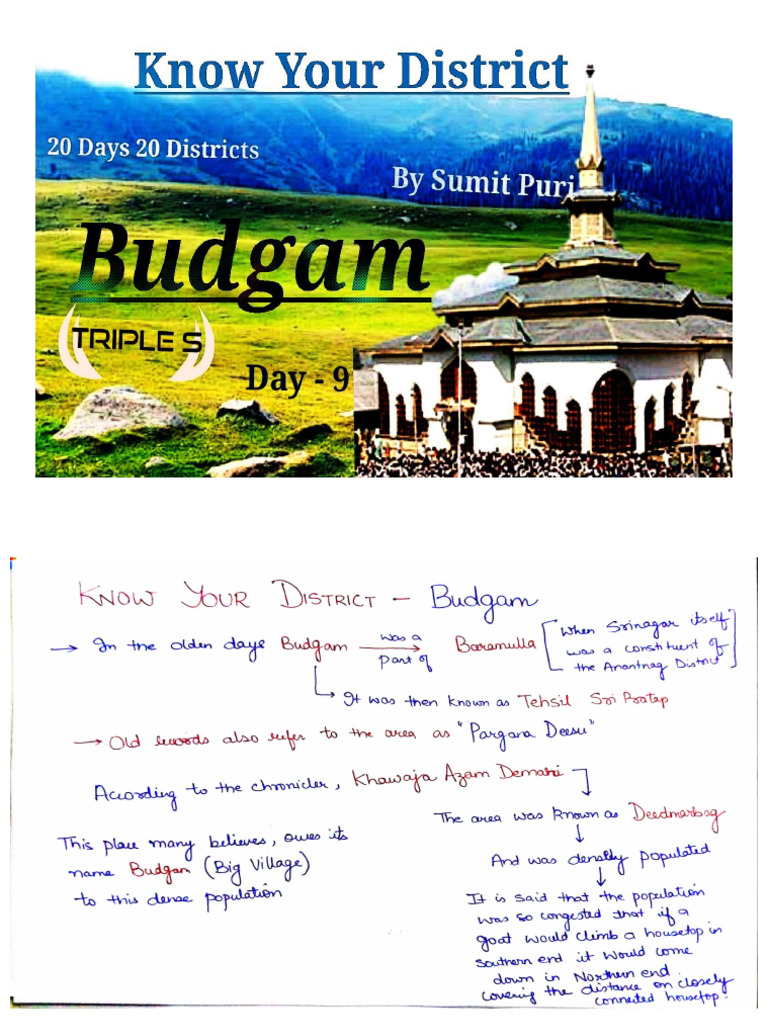 Know Your District
20 Days 20 Districts
By Sumit Puri
Budgam
TRIPLE S
Day - 9
KNOW YOUR DISTRICT - Budgam
→ In the olden days Budgam was a part of → Baramulla [When Srinagar itself
was a constituent of
the Anantnag District]
It was then known as Tehsil Sri Pratap
→ Old records also refer to the area as "Pargana Deesu"
According to the chronicler, Khawaja Azam Demari
The area was known as Deedmarbag
And was densally populated
It is said that the population
was so congested that if a
goat would climb a housetop in
southern end it would come
down in Northern end
covering the distance on closely
connected housetop.
This place many believes, owes its
name Budgam (Big Village)
to this dense population